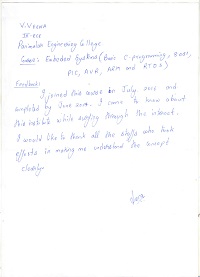 V. Veena
IV-ECE
Panimalar Engineering College
Course: Embedded System (Basic C-programming, 8051,
PIC, AVR, ARM and RTOS)
Feedback:
I joined this course in July and
completed by June. I came to know about
this institute while surfing through the internet.
I would like to thank all the staffs who took
efforts in making me understand the concept
clearly.